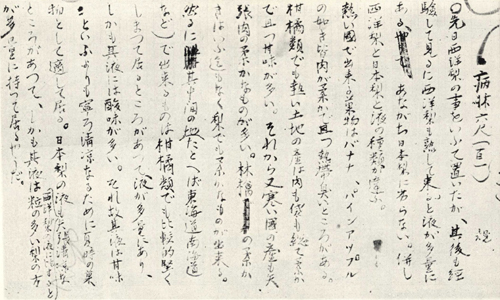 病牀六尺（百一）
規
〇先日西洋梨の事をいふて置いたが、其後も経
験して見るに西洋梨も熟して来ると液が多量に
ある。あながち日本梨に劣らない。併し
西洋梨と日本梨と液の種類が違ふ。
熱い国で出来る菓物はバナナ、パインアップル
の如き皆肉が柔かで且つ熱帯臭いところがある。
柑橘類でも熱い土地の産は肉も袋も総て柔か
で且つ甘味が多い。それから又寒い国の産も矢
張肉の柔かなものが多い。林檎の柔か
きはいふ迄もなく梨でも柔かなものが出来る。
然るに其中間の地たとへば東海道南海道
など）で出来るものは柑橘類でも比較的堅く
しまつて居るところがあつて液が多量にあり、
しかも其液には酸味が多い。それ故其液は甘味
といふよりも寧ろ清涼なるために夏時の菓
物として適して居る。日本梨の液は
西洋梨の液にくらべると
ところがあつて、しかも其液は粒の多い梨の方
が多量に持つて居るやうだ。